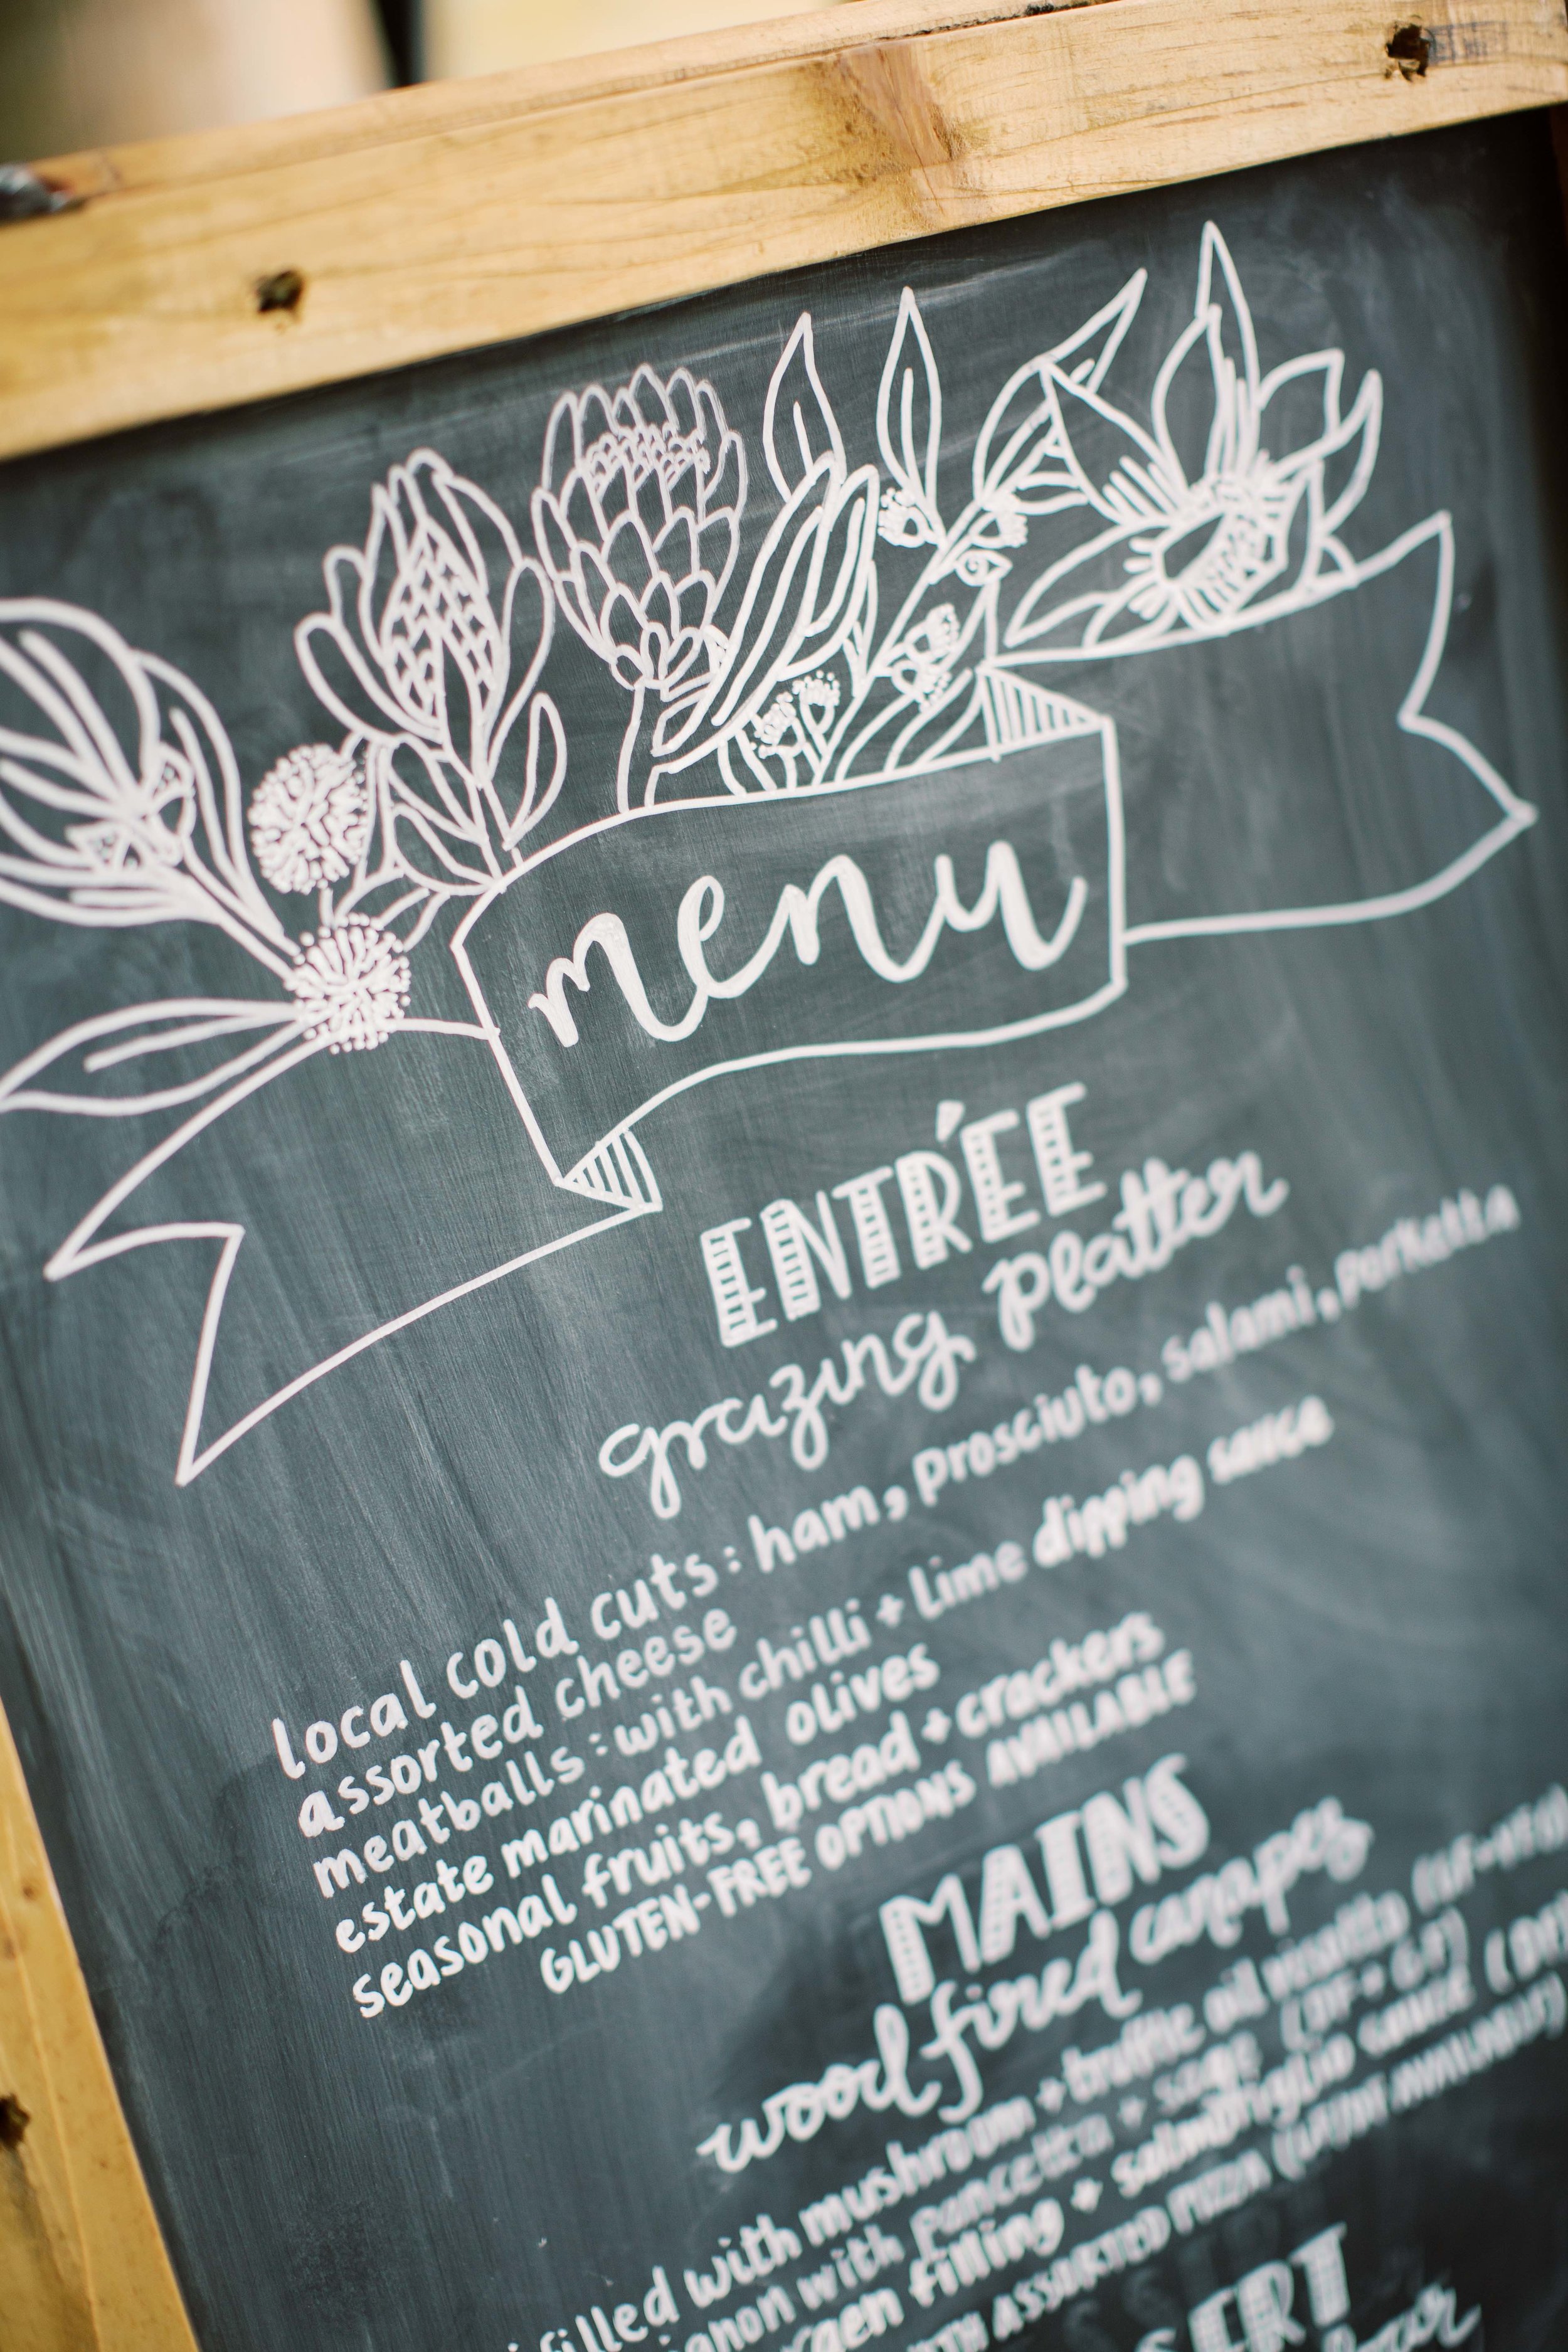 menu
ENTRÉE
grazing platter
local cold cuts: ham, prosciuto, salami, porketta
assorted cheese
meatballs: with chilli + lime dipping sauce
estate marinated olives
seasonal fruits, bread + crackers
GLUTEN-FREE OPTIONS AVAILABLE
MAINS
woodfired canapes
filled with mushroom + truffle oil risotto
with pancetta + sage
filling + salmoriglio sauce
ASSORTED PIZZA
bar